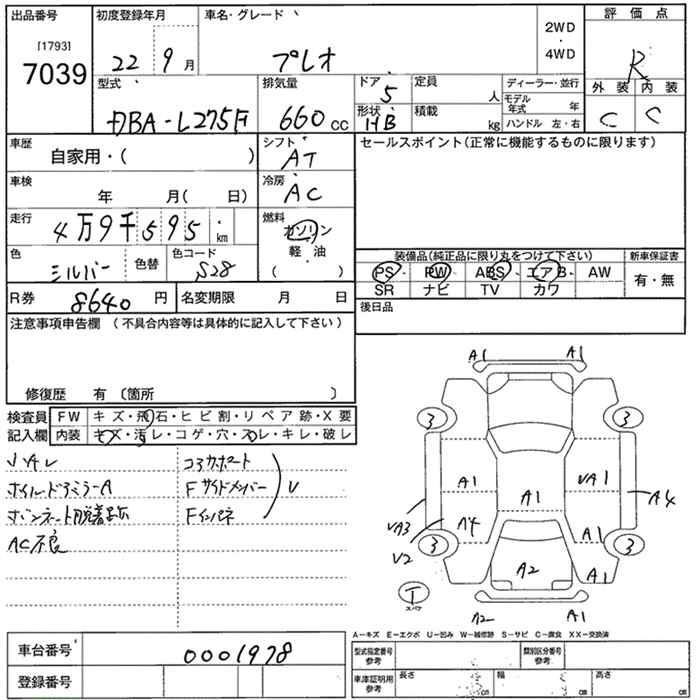 出品番号
[1793]
7039
初度登録年月
22 9月
車名・グレード
プレオ
2WD
・
4WD
評価点
R
外装 内装
C C
型式
DBA-L275F
排気量
660 CC
ドア
5
形状
HB
定員
人
積載
kg
ディーラー・並行
モデル年式 年
ハンドル 左・右
車歴
自家用・( )
シフト
AT
車検
年 月( 日)
冷房
AC
走行
4万9千595 km
燃料
ガソリン
軽・油
( )
色
シルバー
色替
色コード
S28
R券 8640 円
名変期限 月 日
セールスポイント(正常に機能するものに限ります)
装備品(純正品に限り丸をつけて下さい)
新車保証書
PS PW ABS エアB AW
SR ナビ TV カワ
有・無
後日品
注意事項申告欄 (不具合内容等は具体的に記入して下さい)
修復歴 有 〔箇所 〕
検査員
記入欄
FW キズ・飛石・ヒビ割・リペア跡・X要
内装 キズ・汚レ・コゲ・穴・スレ・キレ・破レ
ホイルドアミラーA
ボンネット脱着
AC不良
コアサポート
Fサイドメンバー
Fインパネ
V
A1 A1
3 3
A1 A1 VA1
VA3 A4 A4
V2 A1
3 3
A2 A1
I
スペア
A2 A1
A-キズ E-エクボ U-凹み W-補修跡 S-サビ C-腐食 XX-交換済
車台番号 0001978
登録番号
型式指定番号
参考
類別区分番号
参考
車庫証明用
参考
長さ cm
幅 cm
高さ cm